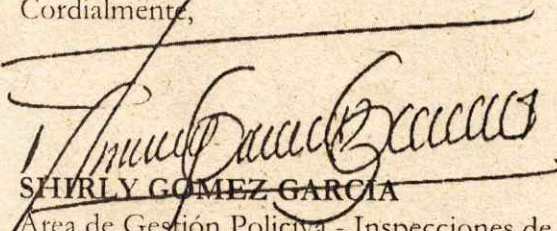 Cordialmente,
SHIRLY GOMEZ GARCIA
Área de Gestión Policiva - Inspecciones de